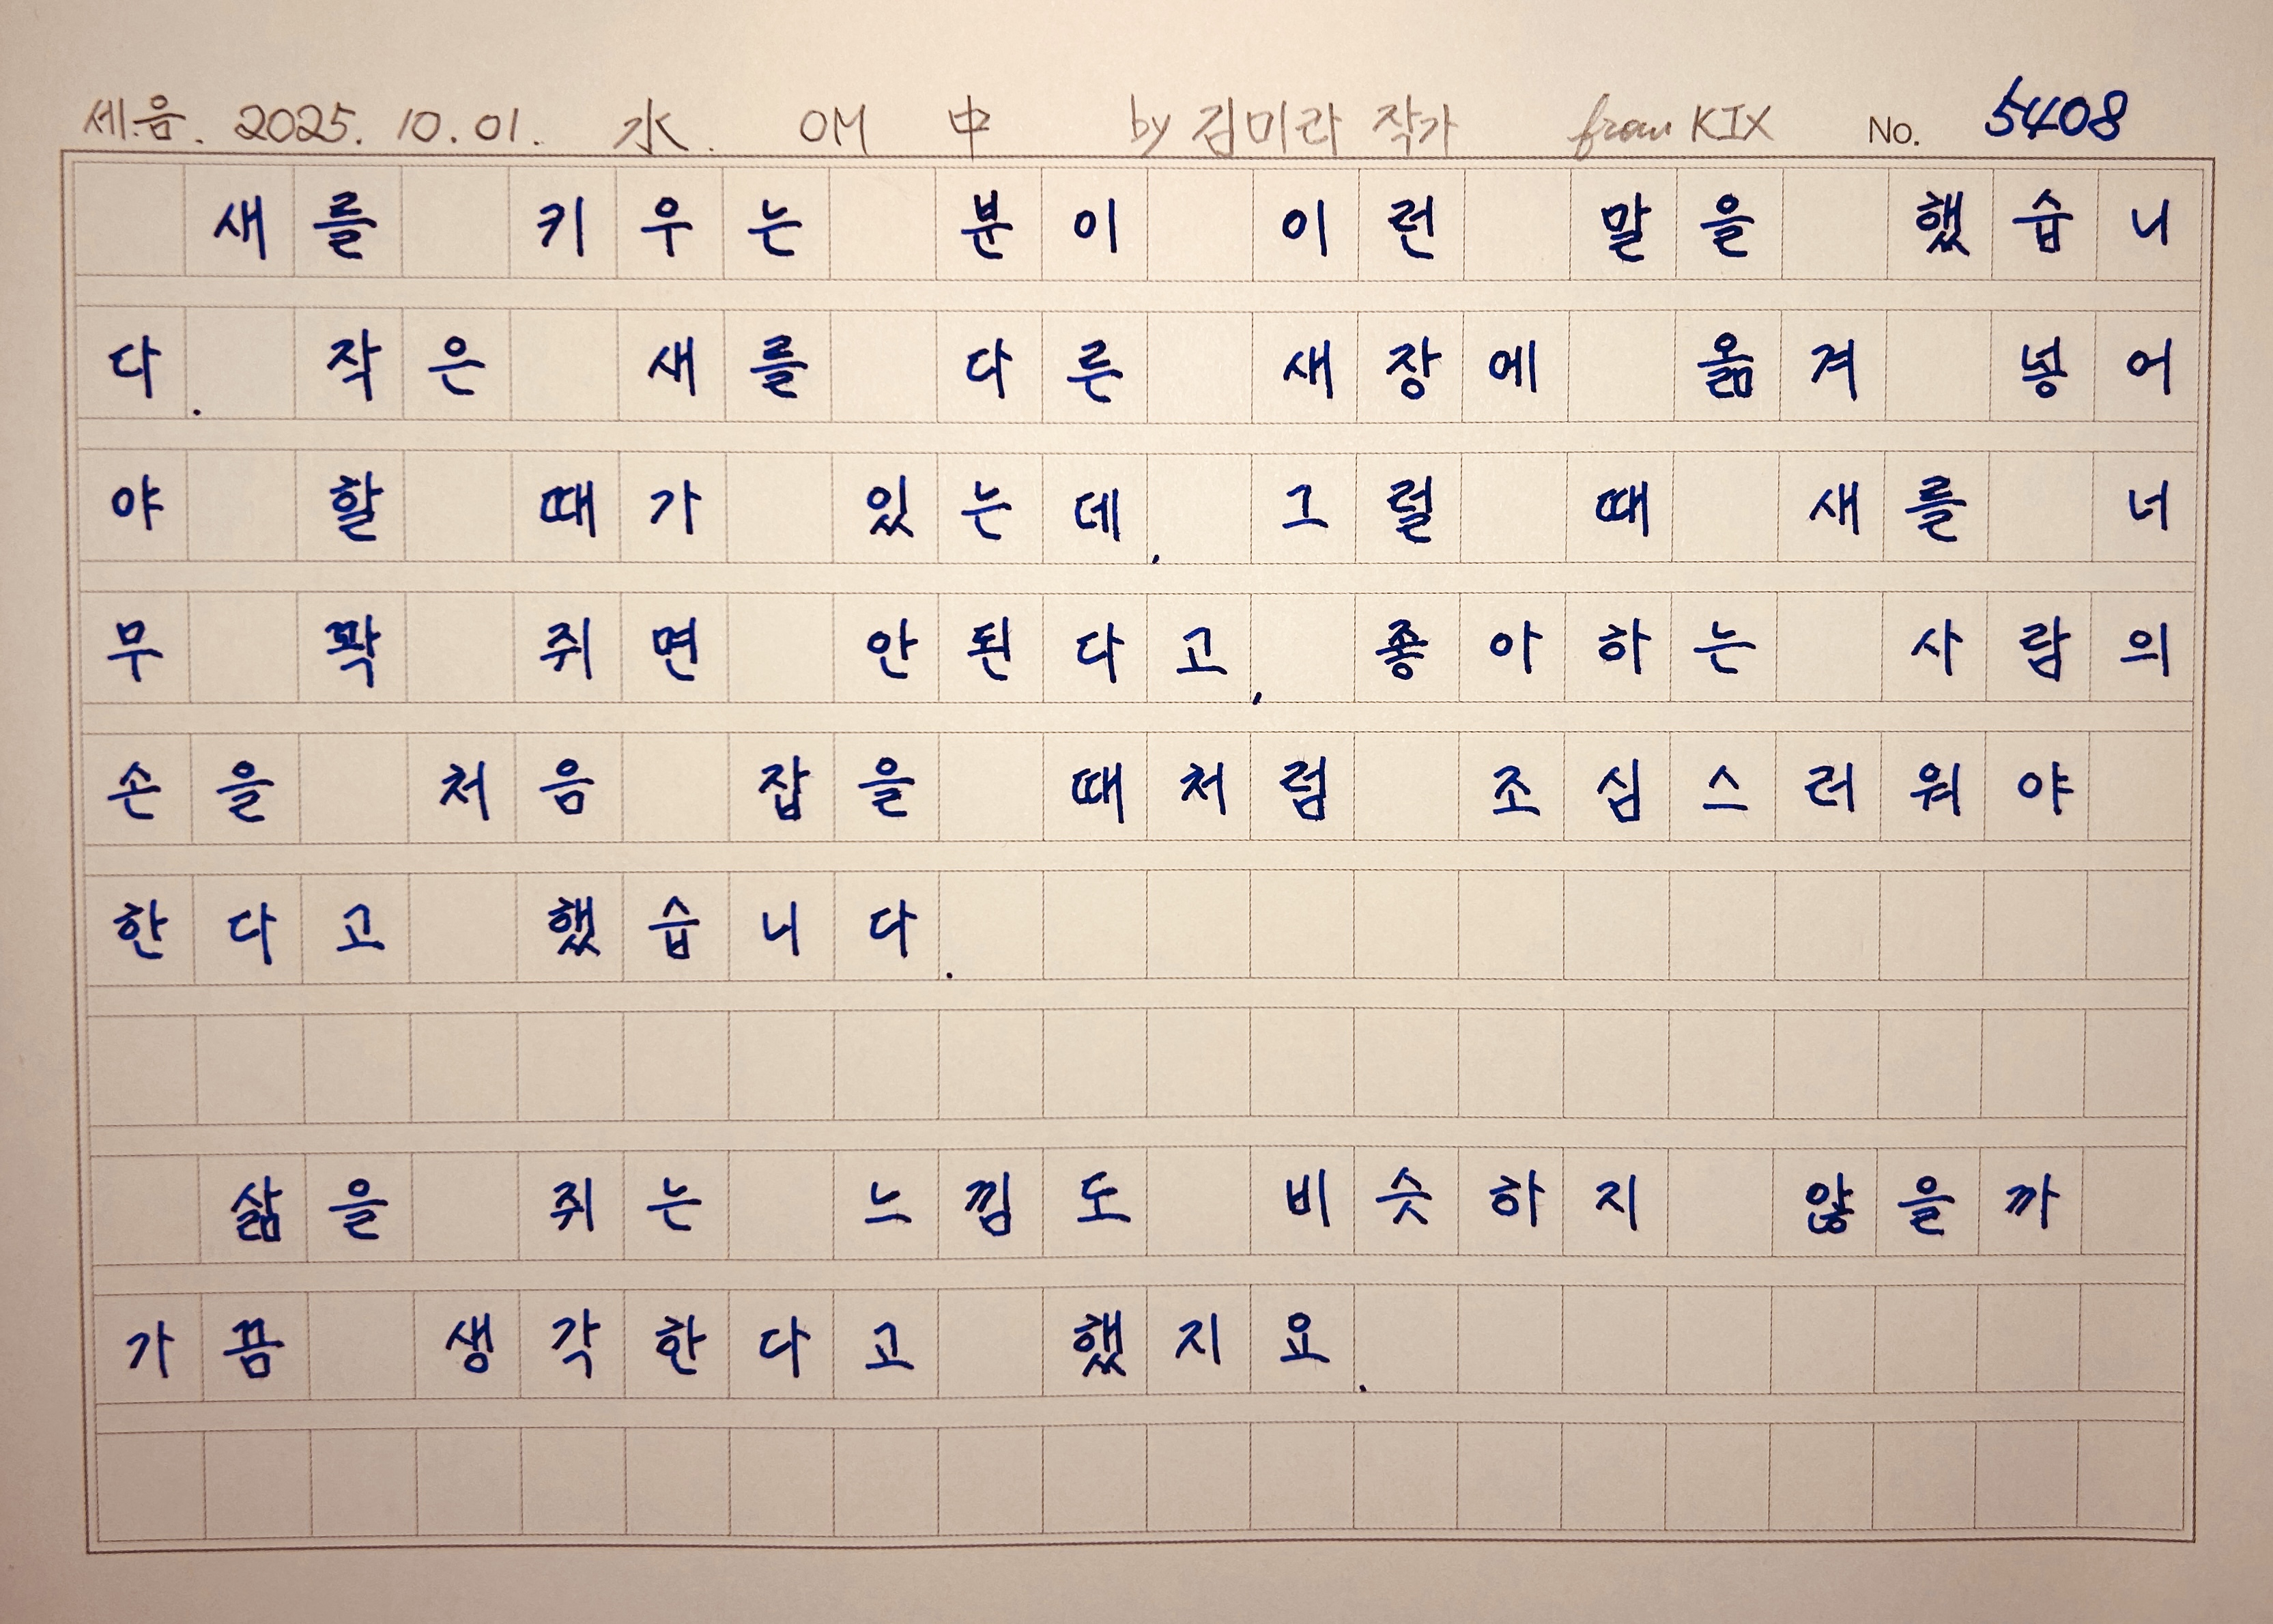 세.음. 2025. 10. 01. 水. OM 中 by 김미라 작가 from KIX No. 5408
새를 키우는 분이 이런 말을 했습니
다. 작은 새를 다른 새장에 옮겨 넣어
야 할 때가 있는데, 그럴 때 새를 너
무 꽉 쥐면 안된다고, 좋아하는 사람의
손을 처음 잡을 때처럼 조심스러워야
한다고 했습니다.
삶을 쥐는 느낌도 비슷하지 않을까
가끔 생각한다고 했지요.